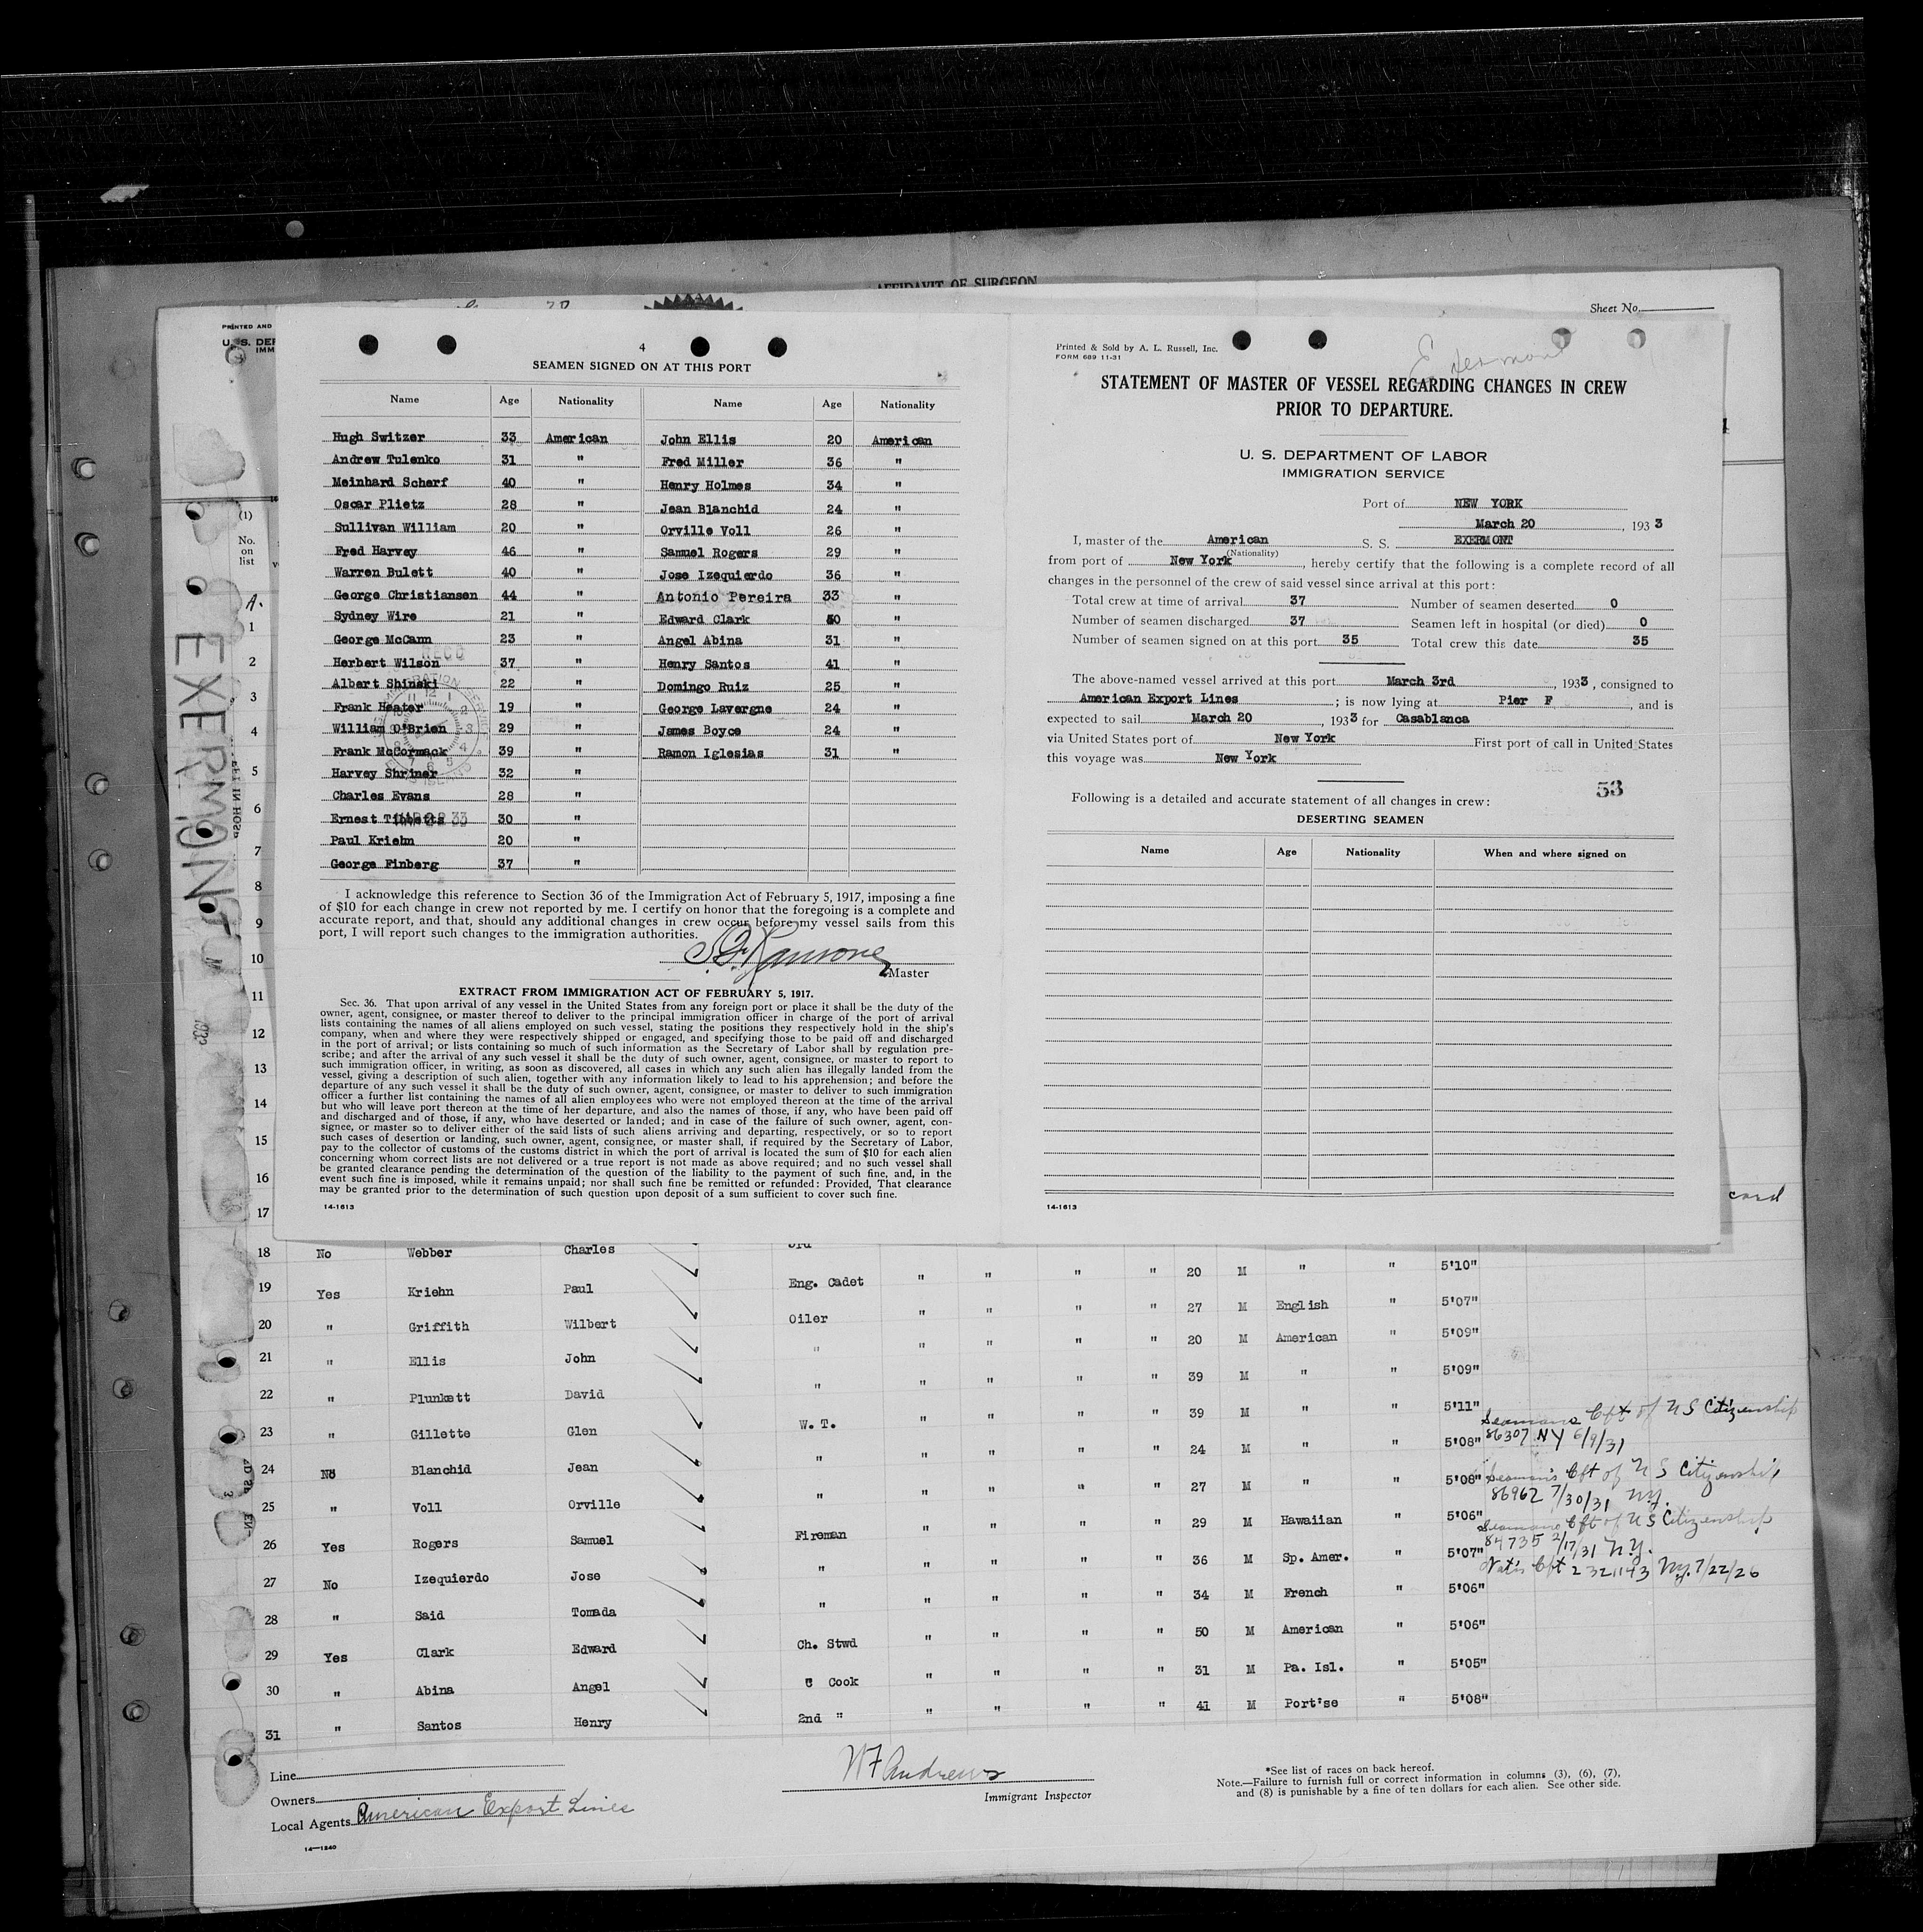 AFFIDAVIT OF SURGEON
Sheet No.
PRINTED AND
U. S. DEP
IMM
4
SEAMEN SIGNED ON AT THIS PORT
Name Age Nationality Name Age Nationality
Hugh Switzer 33 American John Ellis 20 American
Andrew Tulenko 31 " Fred Miller 36 "
Meinhard Scherf 40 " Henry Holmes 34 "
Oscar Plietz 28 " Jean Blanchid 24 "
Sullivan William 20 " Orville Voll 26 "
Fred Harvey 46 " Samuel Rogers 29 "
Warren Bulett 40 " Jose Izequierdo 36 "
George Christiansen 44 " Antonio Pereira 33 "
Sydney Wire 21 " Edward Clark 50 "
George McCann 23 " Angel Abina 31 "
Herbert Wilson 37 " Henry Santos 41 "
Albert Shinski 22 " Domingo Ruiz 25 "
Frank Heater 19 " George Lavergne 24 "
William O'Brien 29 " James Boyce 24 "
Frank McCormack 39 " Ramon Iglesias 31 "
Harvey Shriner 32 "
Charles Evans 28 "
Ernest Tibbetts 30 "
Paul Kriehn 20 "
George Finberg 37 "
I acknowledge this reference to Section 36 of the Immigration Act of February 5, 1917, imposing a fine
of $10 for each change in crew not reported by me. I certify on honor that the foregoing is a complete and
accurate report, and that, should any additional changes in crew occur before my vessel sails from this
port, I will report such changes to the immigration authorities.
Master
EXTRACT FROM IMMIGRATION ACT OF FEBRUARY 5, 1917.
Sec. 36. That upon arrival of any vessel in the United States from any foreign port or place it shall be the duty of the
owner, agent, consignee, or master thereof to deliver to the principal immigration officer in charge of the port of arrival
lists containing the names of all aliens employed on such vessel, stating the positions they respectively hold in the ship's
company, when and where they were respectively shipped or engaged, and specifying those to be paid off and discharged
in the port of arrival; or lists containing so much of such information as the Secretary of Labor shall by regulation pre-
scribe; and after the arrival of any such vessel it shall be the duty of such owner, agent, consignee, or master to report to
such immigration officer, in writing, as soon as discovered, all cases in which any such alien has illegally landed from the
vessel, giving a description of such alien, together with any information likely to lead to his apprehension; and before the
departure of any such vessel it shall be the duty of such owner, agent, consignee, or master to deliver to such immigration
officer a further list containing the names of all alien employees who were not employed thereon at the time of the arrival
but who will leave port thereon at the time of her departure, and also the names of those, if any, who have been paid off
and discharged and of those, if any, who have deserted or landed; and in case of the failure of such owner, agent, con-
signee, or master so to deliver either of the said lists of such aliens arriving and departing, respectively, or so to report
such cases of desertion or landing, such owner, agent, consignee, or master shall, if required by the Secretary of Labor,
pay to the collector of customs of the customs district in which the port of arrival is located the sum of $10 for each alien
concerning whom correct lists are not delivered or a true report is not made as above required; and no such vessel shall
be granted clearance pending the determination of the question of the liability to the payment of such fine, and, in the
event such fine is imposed, while it remains unpaid; nor shall such fine be remitted or refunded: Provided, That clearance
may be granted prior to the determination of such question upon deposit of a sum sufficient to cover such fine.
14-1613
Printed & Sold by A. L. Russell, Inc.
FORM 689 11-31
Exermont
STATEMENT OF MASTER OF VESSEL REGARDING CHANGES IN CREW
PRIOR TO DEPARTURE.
U. S. DEPARTMENT OF LABOR
IMMIGRATION SERVICE
Port of NEW YORK
March 20, 1933
I, master of the American S. S. EXERMONT
(Nationality)
from port of New York, hereby certify that the following is a complete record of all
changes in the personnel of the crew of said vessel since arrival at this port:
Total crew at time of arrival 37 Number of seamen deserted 0
Number of seamen discharged 37 Seamen left in hospital (or died) 0
Number of seamen signed on at this port 35 Total crew this date 35
The above-named vessel arrived at this port March 3rd 1933, consigned to
American Export Lines; is now lying at Pier F, and is
expected to sail March 20, 1933 for Casablanca
via United States port of New York First port of call in United States
this voyage was New York
53
Following is a detailed and accurate statement of all changes in crew:
DESERTING SEAMEN
Name Age Nationality When and where signed on
14-1613
EXERMONT
(1)
No.
on
list
1
2
3
4
5
6
7
8
9
10
11
12
13
14
15
16
17
card
18 No Webber Charles 3rd
19 Yes Kriehn Paul Eng. Cadet " " " " 20 M " " 5'10"
20 " Griffith Wilbert Oiler " " " " 27 M English " 5'07"
21 " Ellis John " " " " " 20 M American " 5'09"
22 " Plunkett David " " " " " 39 M " " 5'09"
23 " Gillette Glen W. T. " " " " 39 M " " 5'11"
24 No Blanchid Jean " " " " " 24 M " " 5'08" Seamans Cft of US Citizenship 86307 NY 6/9/31
25 " Voll Orville " " " " " 27 M " " 5'08" Seaman's Cft of US Citizenship 86962 7/30/31 N.Y.
26 Yes Rogers Samuel Fireman " " " " 29 M Hawaiian " 5'06" Seamans Cft of US Citizenship 84735 2/17/31 N.Y.
27 No Izequierdo Jose " " " " " 36 M Sp. Amer. " 5'07" Nat's Cft 2321143 Ny. 7/22/26
28 " Said Tomada " " " " " 34 M French " 5'06"
29 Yes Clark Edward Ch. Stwd " " " " 50 M American " 5'06"
30 " Abina Angel " Cook " " " " 31 M Pa. Isl. " 5'05"
31 " Santos Henry 2nd " " " " " 41 M Port'se " 5'08"
Line
Owners
Local Agents American Export Lines
14-1240
W F Andrews
Immigrant Inspector
*See list of races on back hereof.
Note.—Failure to furnish full or correct information in columns (3), (6), (7),
and (8) is punishable by a fine of ten dollars for each alien. See other side.